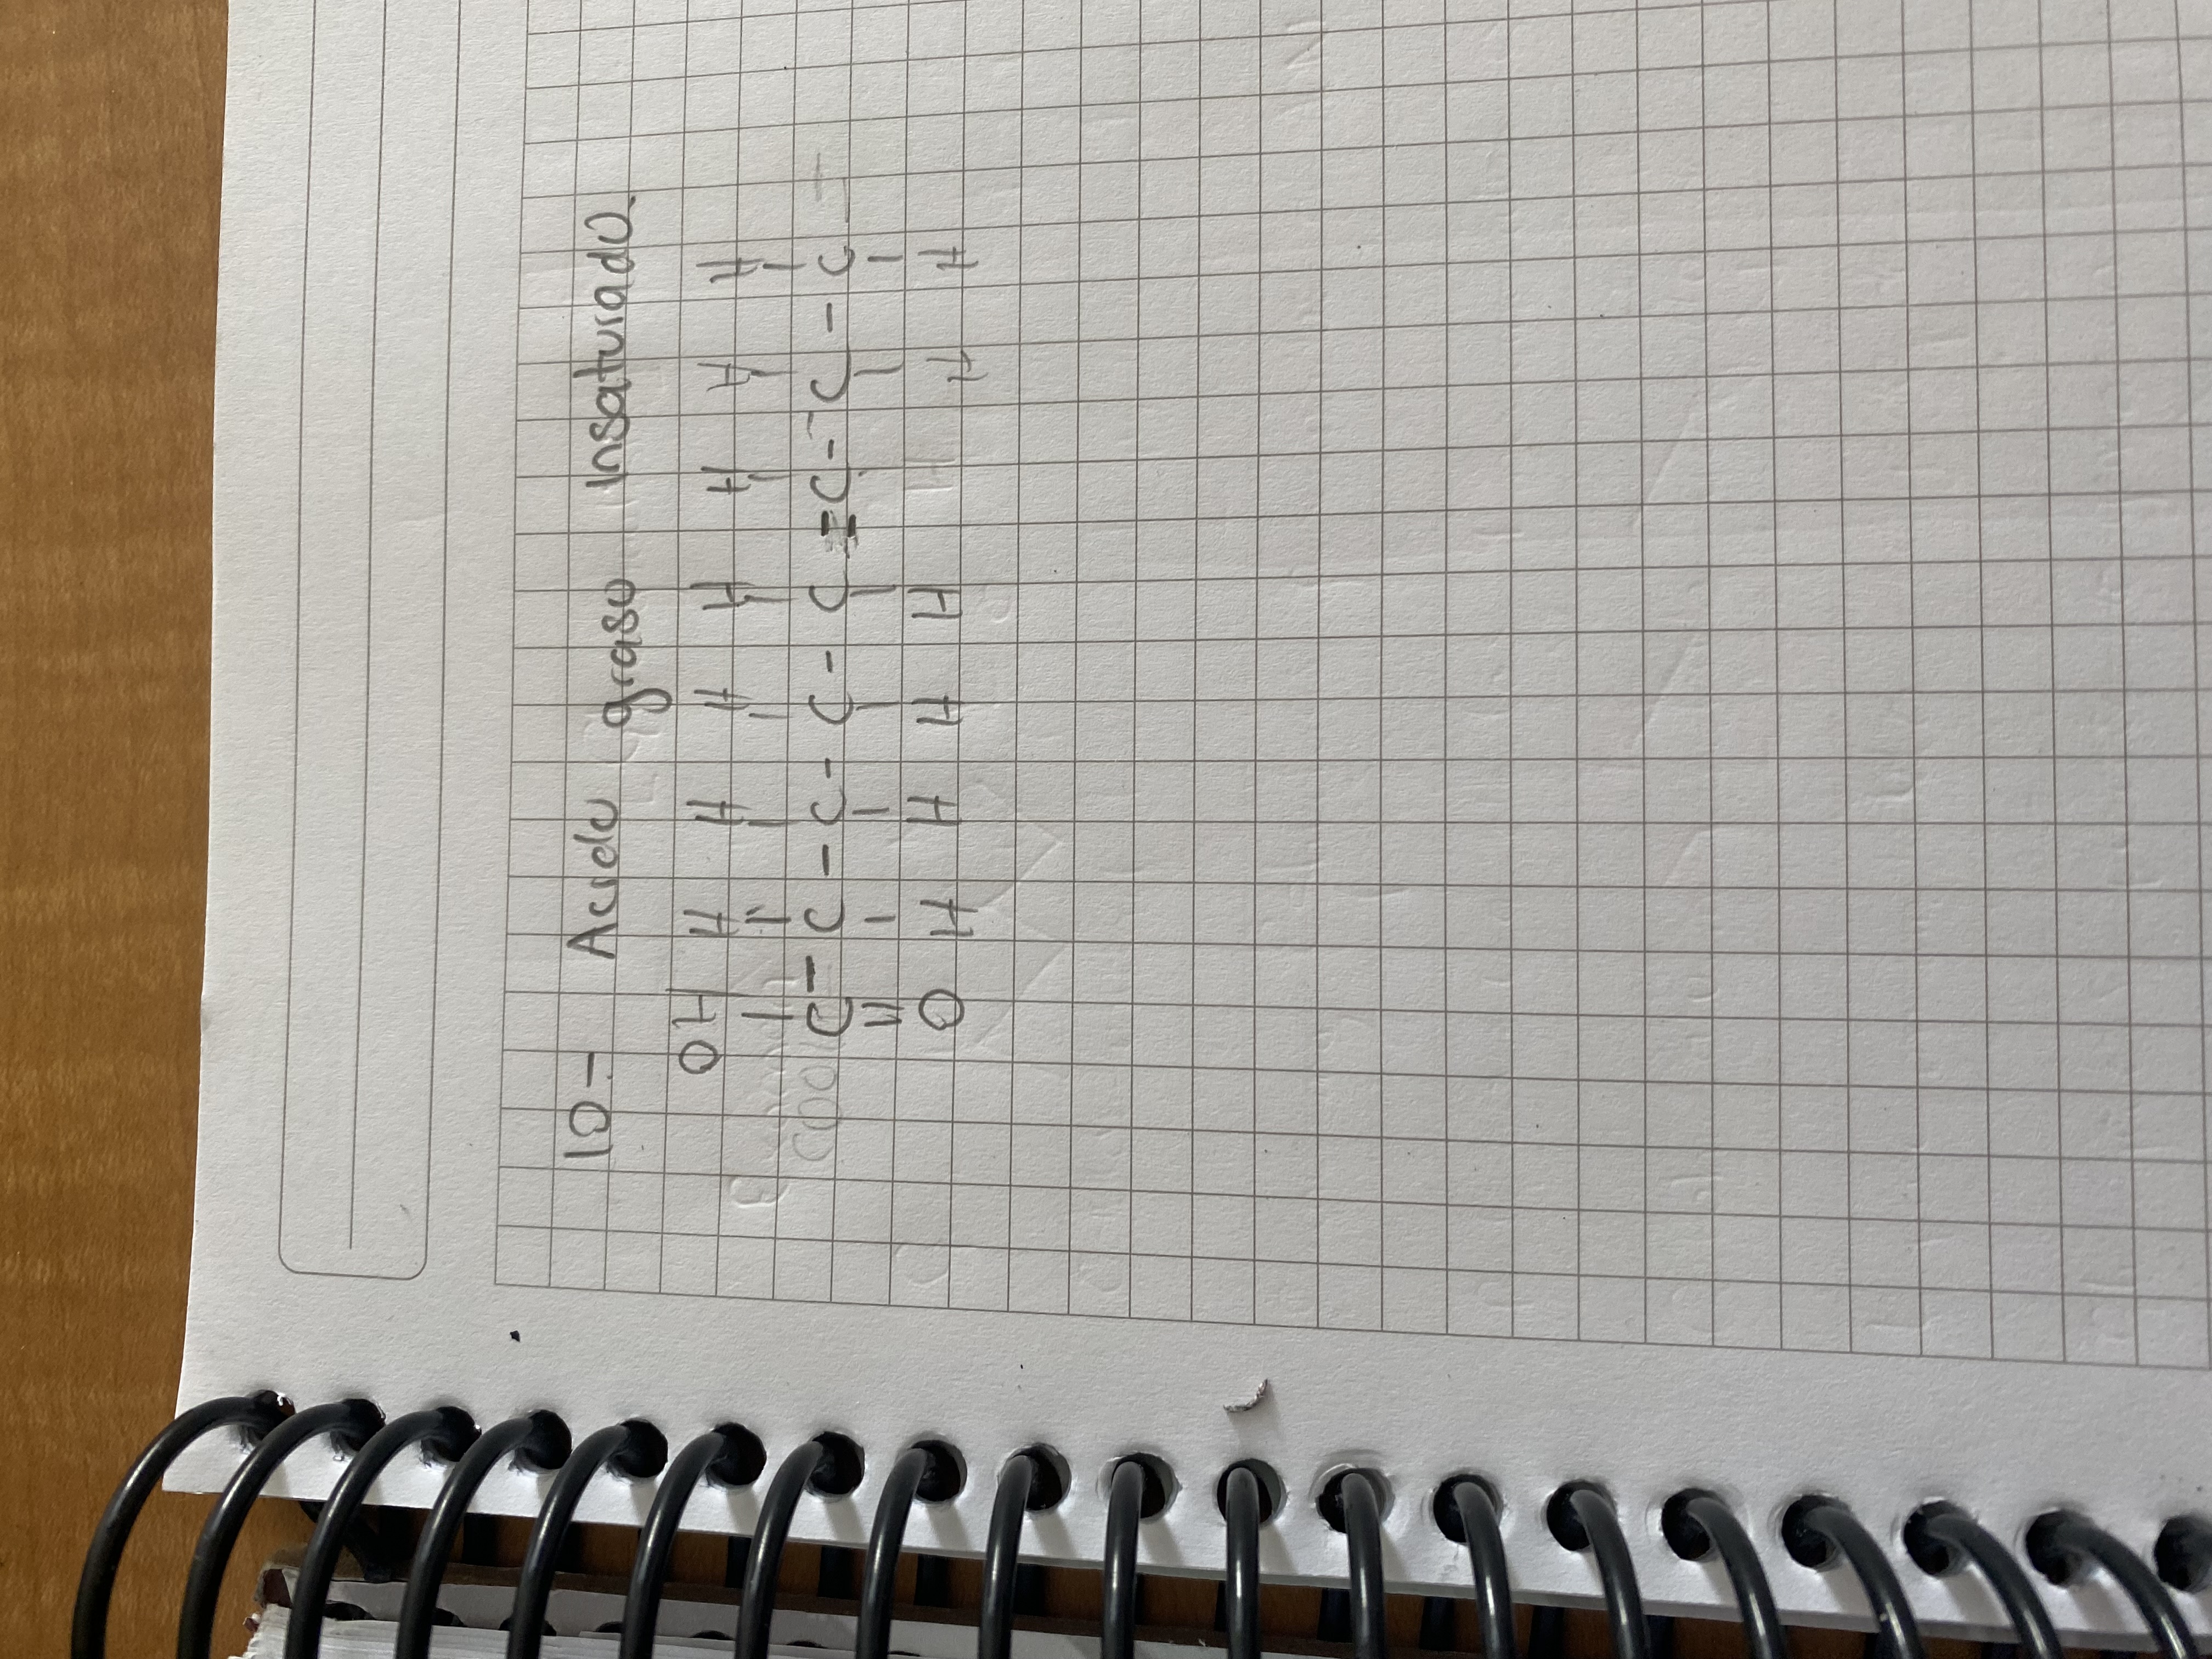 10- Acido graso Insaturado.
OH H H H H H H H
| | | | | | | |
C - C - C - C - C = C - C - C
|| | | | | | |
O H H H H H H